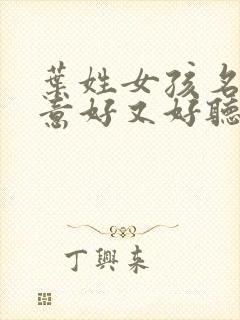 葉姓女孩名
意好又好聽
丁興来